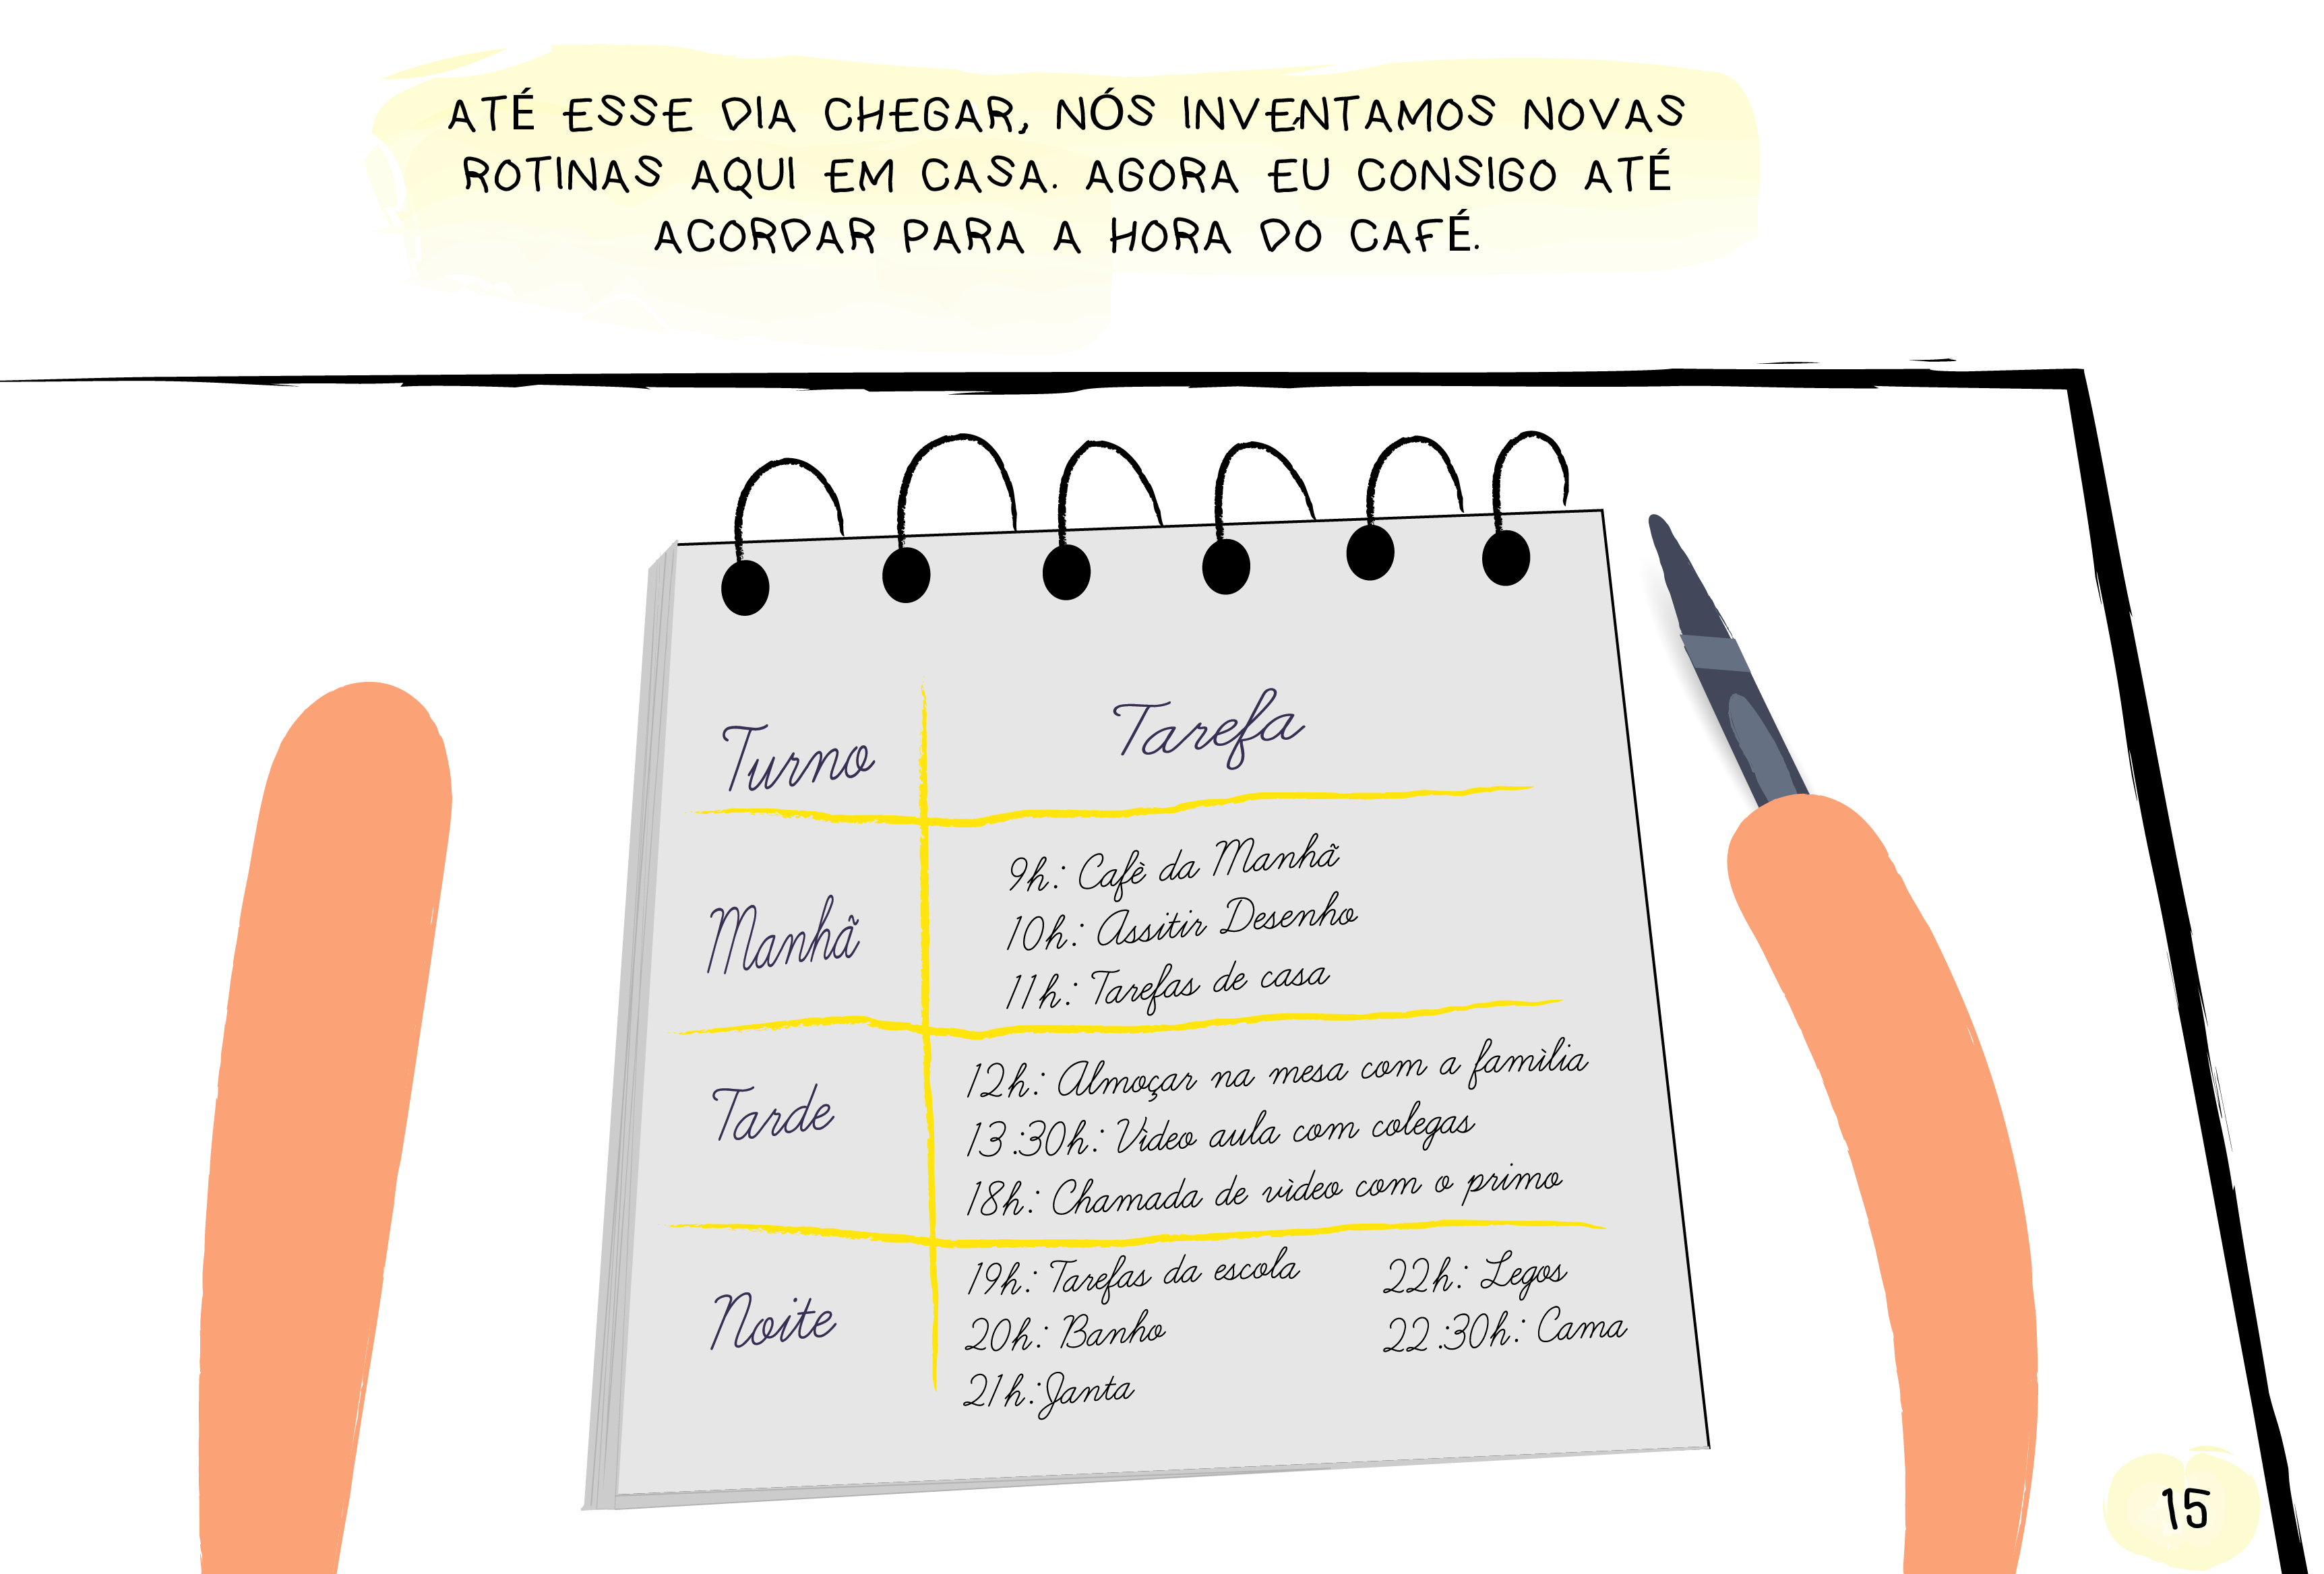 ATÉ ESSE DIA CHEGAR, NÓS INVENTAMOS NOVAS
ROTINAS AQUI EM CASA. AGORA EU CONSIGO ATÉ
ACORDAR PARA A HORA DO CAFÉ.
Turno
Tarefa
Manhã
9h: Cafè da Manhã
10h: Assitir Desenho
11h: Tarefas de casa
Tarde
12h: Almoçar na mesa com a famìlia
13:30h: Vìdeo aula com colegas
18h: Chamada de vìdeo com o primo
Noite
19h: Tarefas da escola
20h: Banho
21h: Janta
22h: Legos
22:30h: Cama
15